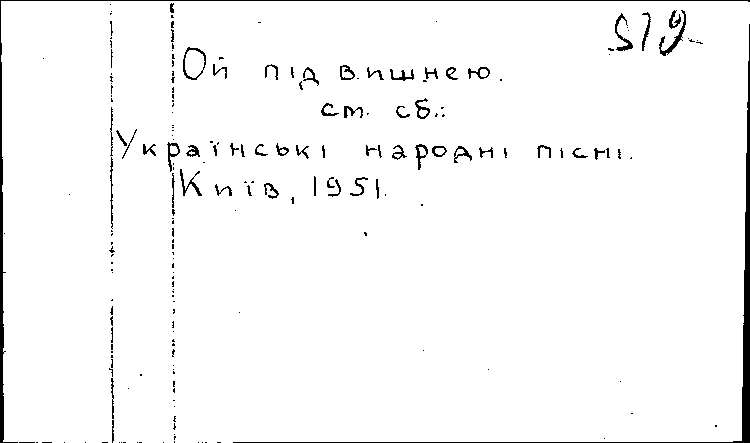 S12
Ой під вишнею.
ст. сб.:
Українські народні пісні.
Київ, 1951.